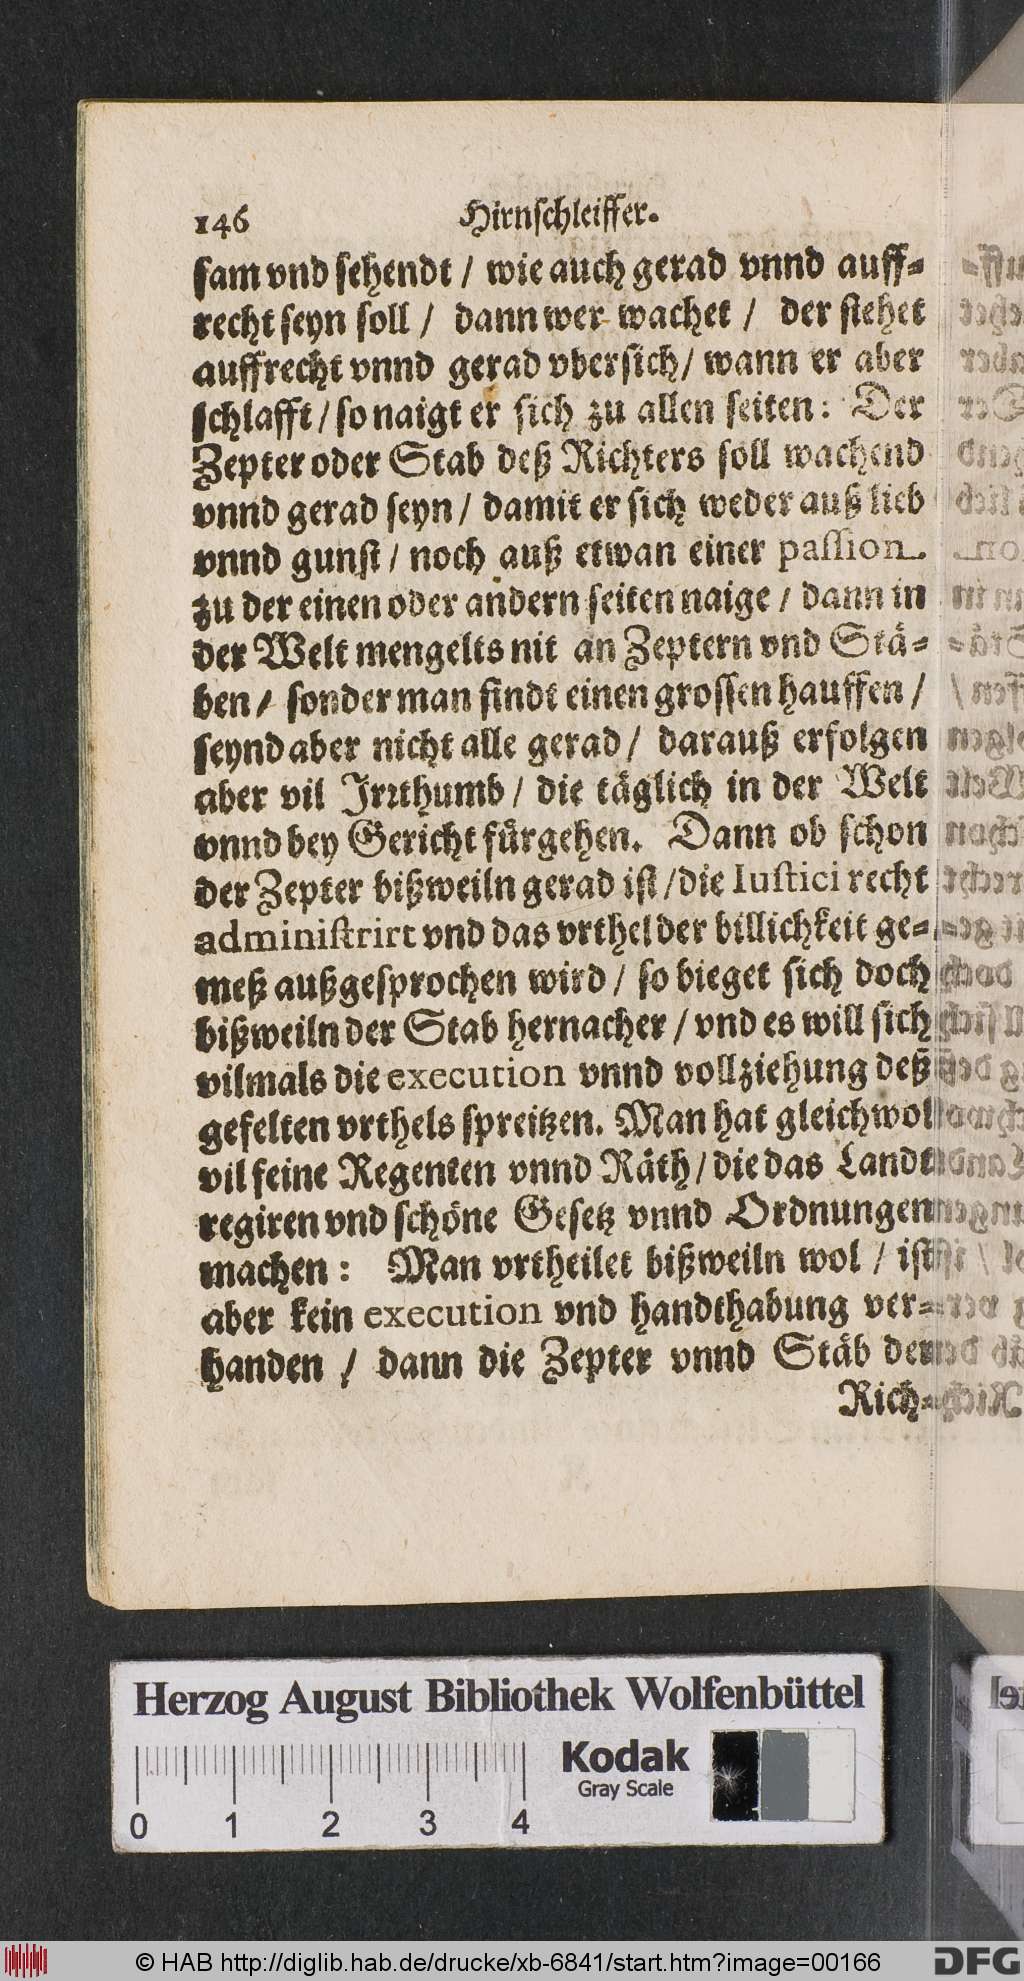 146 Hirnschleiffer.
sam vnd sehendt / wie auch gerad vnnd auff-
recht seyn soll / dann wer wachet / der stehet
auffrecht vnnd gerad vbersich / wann er aber
schlafft / so naigt er sich zu allen seiten: Der
Zepter oder Stab deß Richters soll wachend
vnnd gerad seyn / damit er sich weder auß lieb
vnnd gunst / noch auß etwan einer passion
zu der einen oder andern seiten naige / dann in
der Welt mengelts nit an Zeptern vnd Stä-
ben / sonder man findt einen grossen hauffen /
seynd aber nicht alle gerad / darauß erfolgen
aber vil Jrrthumb / die täglich in der Welt
vnnd bey Gericht fürgehen. Dann ob schon
der Zepter bißweiln gerad ist / die Iustici recht
administrirt vnd das vrthel der billichkeit ge-
meß außgesprochen wird / so bieget sich doch
bißweiln der Stab hernacher / vnd es will sich
vilmals die execution vnnd vollziehung deß
gefelten vrthels spreitzen. Man hat gleichwol
vil feine Regenten vnnd Räth / die das Landt
regiren vnd schöne Gesetz vnnd Ordnungen
machen: Man vrtheilet bißweiln wol / ist
aber kein execution vnd handthabung ver-
handen / dann die Zepter vnnd Stäb der
Rich-
Herzog August Bibliothek Wolfenbüttel
Kodak
Gray Scale
0 1 2 3 4
© HAB http://diglib.hab.de/drucke/xb-6841/start.htm?image=00166
DFG